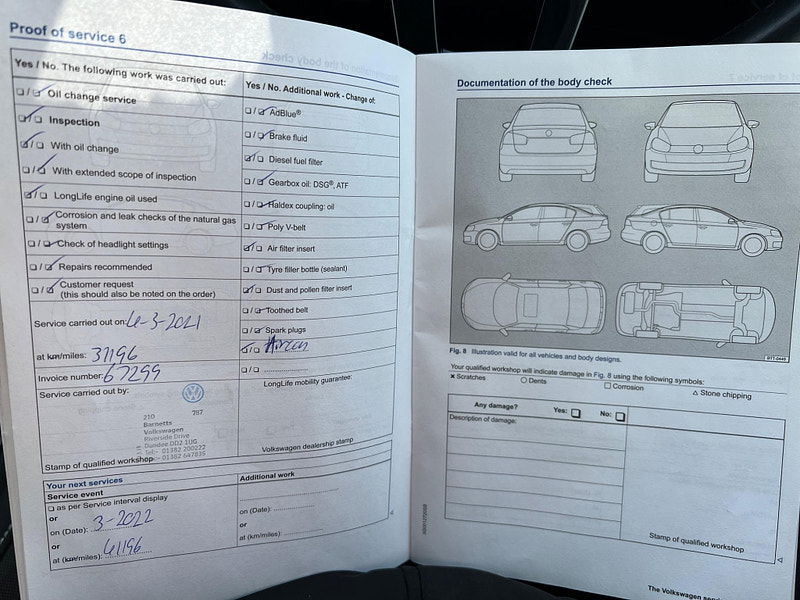 Proof of service 6
Yes / No. The following work was carried out:
Oil change service
Inspection
With oil change
With extended scope of inspection
LongLife engine oil used
Corrosion and leak checks of the natural gas
system
Check of headlight settings
Repairs recommended
Customer request
(this should also be noted on the order)
Service carried out on: 4-3-2021
at km/miles: 31196
Invoice number: 67299
Service carried out by:
210 787
Barnetts
Volkswagen
Riverside Drive
Dundee DD2 1UG
Tel:- 01382 200222
01382 647835
Stamp of qualified workshop
Yes / No. Additional work - Change of:
AdBlue®
Brake fluid
Diesel fuel filter
Gearbox oil: DSG®, ATF
Haldex coupling: oil
Poly V-belt
Air filter insert
Tyre filler bottle (sealant)
Dust and pollen filter insert
Toothed belt
Spark plugs
Aircon
LongLife mobility guarantee:
Volkswagen dealership stamp
Your next services
Service event
as per Service interval display
or
on (Date): 3-2022
or
at (km/miles): 41196
Additional work
on (Date):
or
at (km/miles):
Documentation of the body check
BTT-0449
Fig. 8 Illustration valid for all vehicles and body designs.
Your qualified workshop will indicate damage in Fig. 8 using the following symbols:
× Scratches ○ Dents □ Corrosion △ Stone chipping
Any damage? Yes: No:
Description of damage:
Stamp of qualified workshop
The Volkswagen